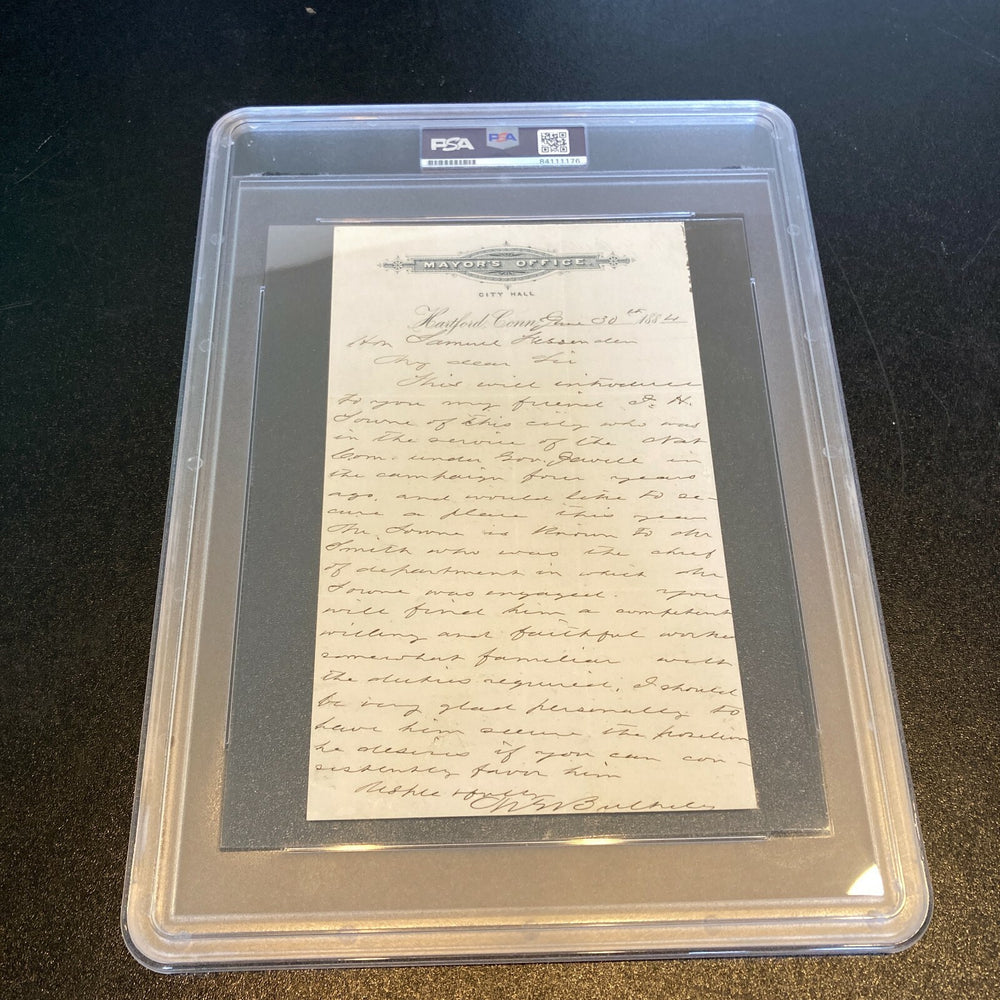 PSA PSA
84111176
MAYOR'S OFFICE
CITY HALL
Hartford, Conn. June 30th 1884
Hon Samuel Fessenden
My dear Sir
This will introduce
to you my friend F. H.
Towne of this city who was
in the service of the Nat
Com. under Gov. Jewell in
the campaign four years
ago, and would like to se-
cure a place this year
Mr. Towne is known to Mr
Smith who was the chief
of department in which Mr
Towne was engaged. You
will find him a competent
willing and faithful worker
somewhat familiar with
the duties required. I should
be very glad personally to
have him secure the position
he desires if you can con-
sistently favor him
Respectfully
M G Bulkeley